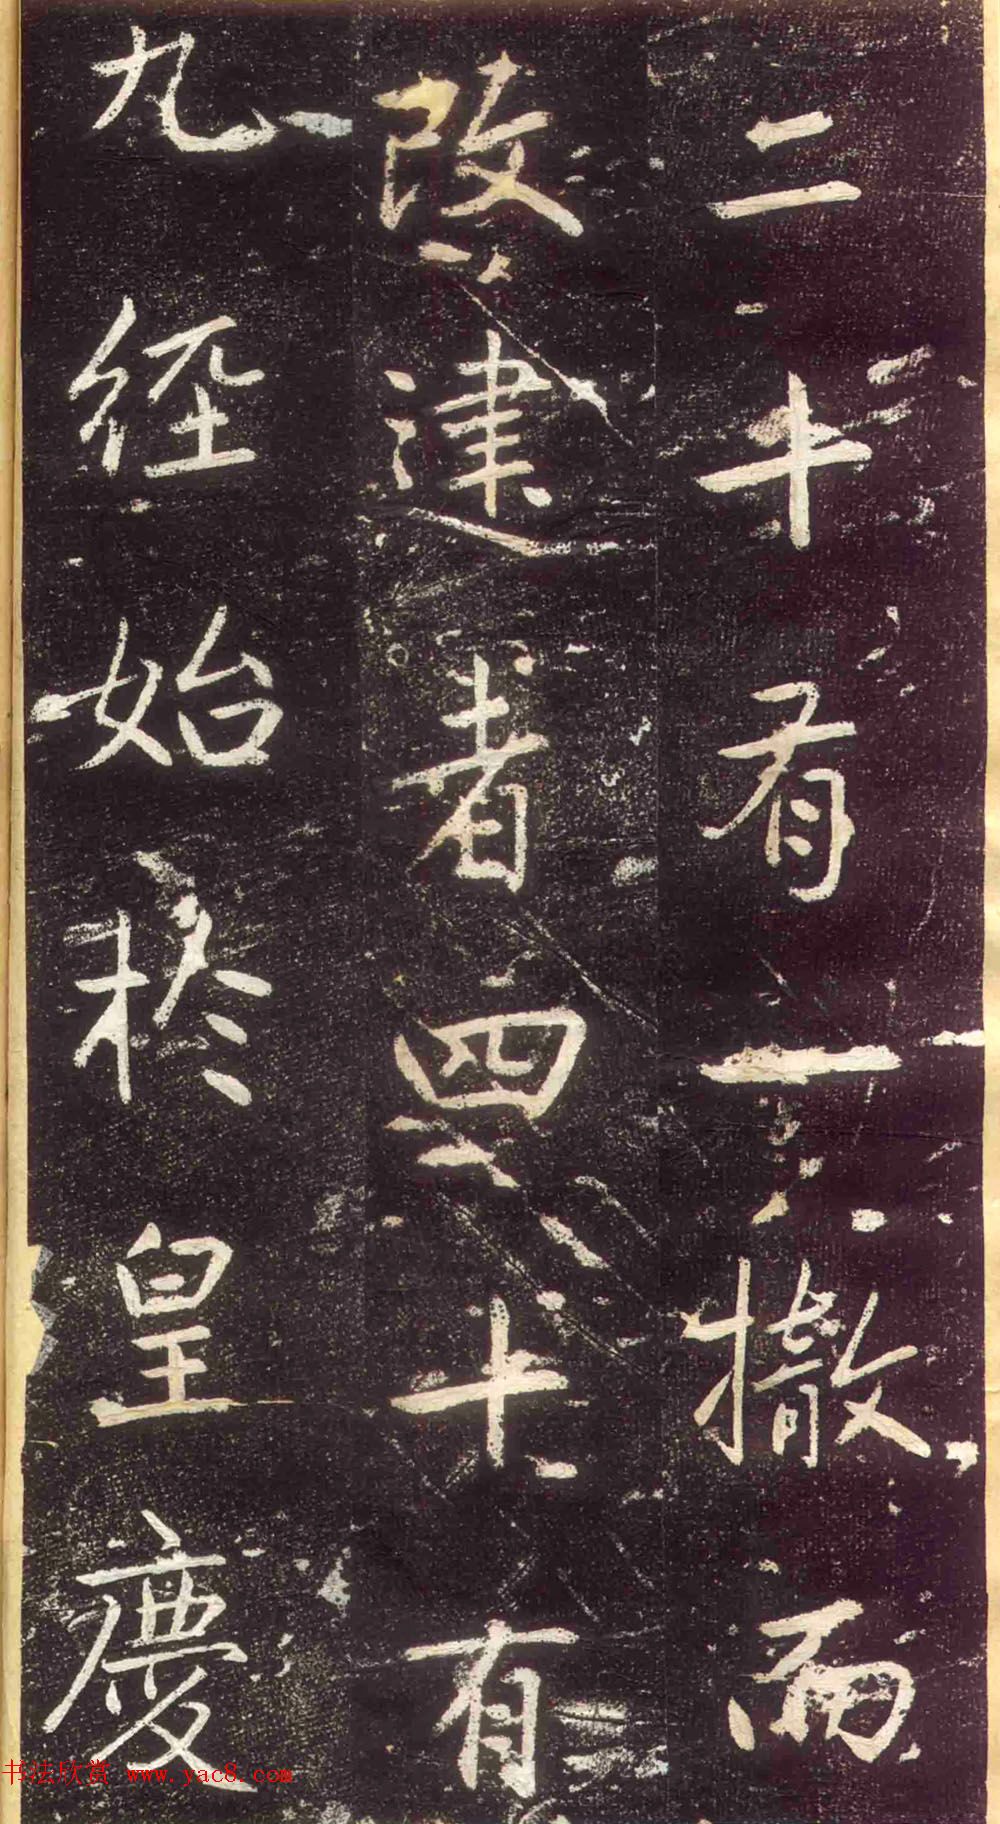 二十有一撤而
改建者四十有
九經始於皇慶
书法欣赏 www.yac8.com